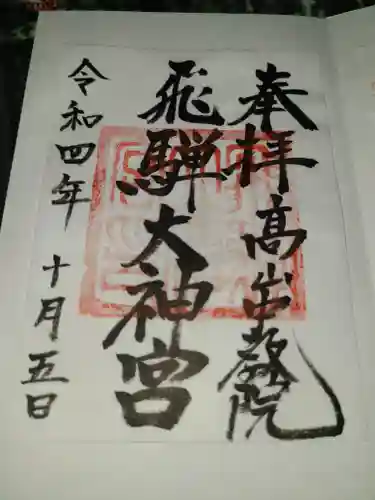 奉拝 高山教院
飛騨大神宮
令和四年 十月五日